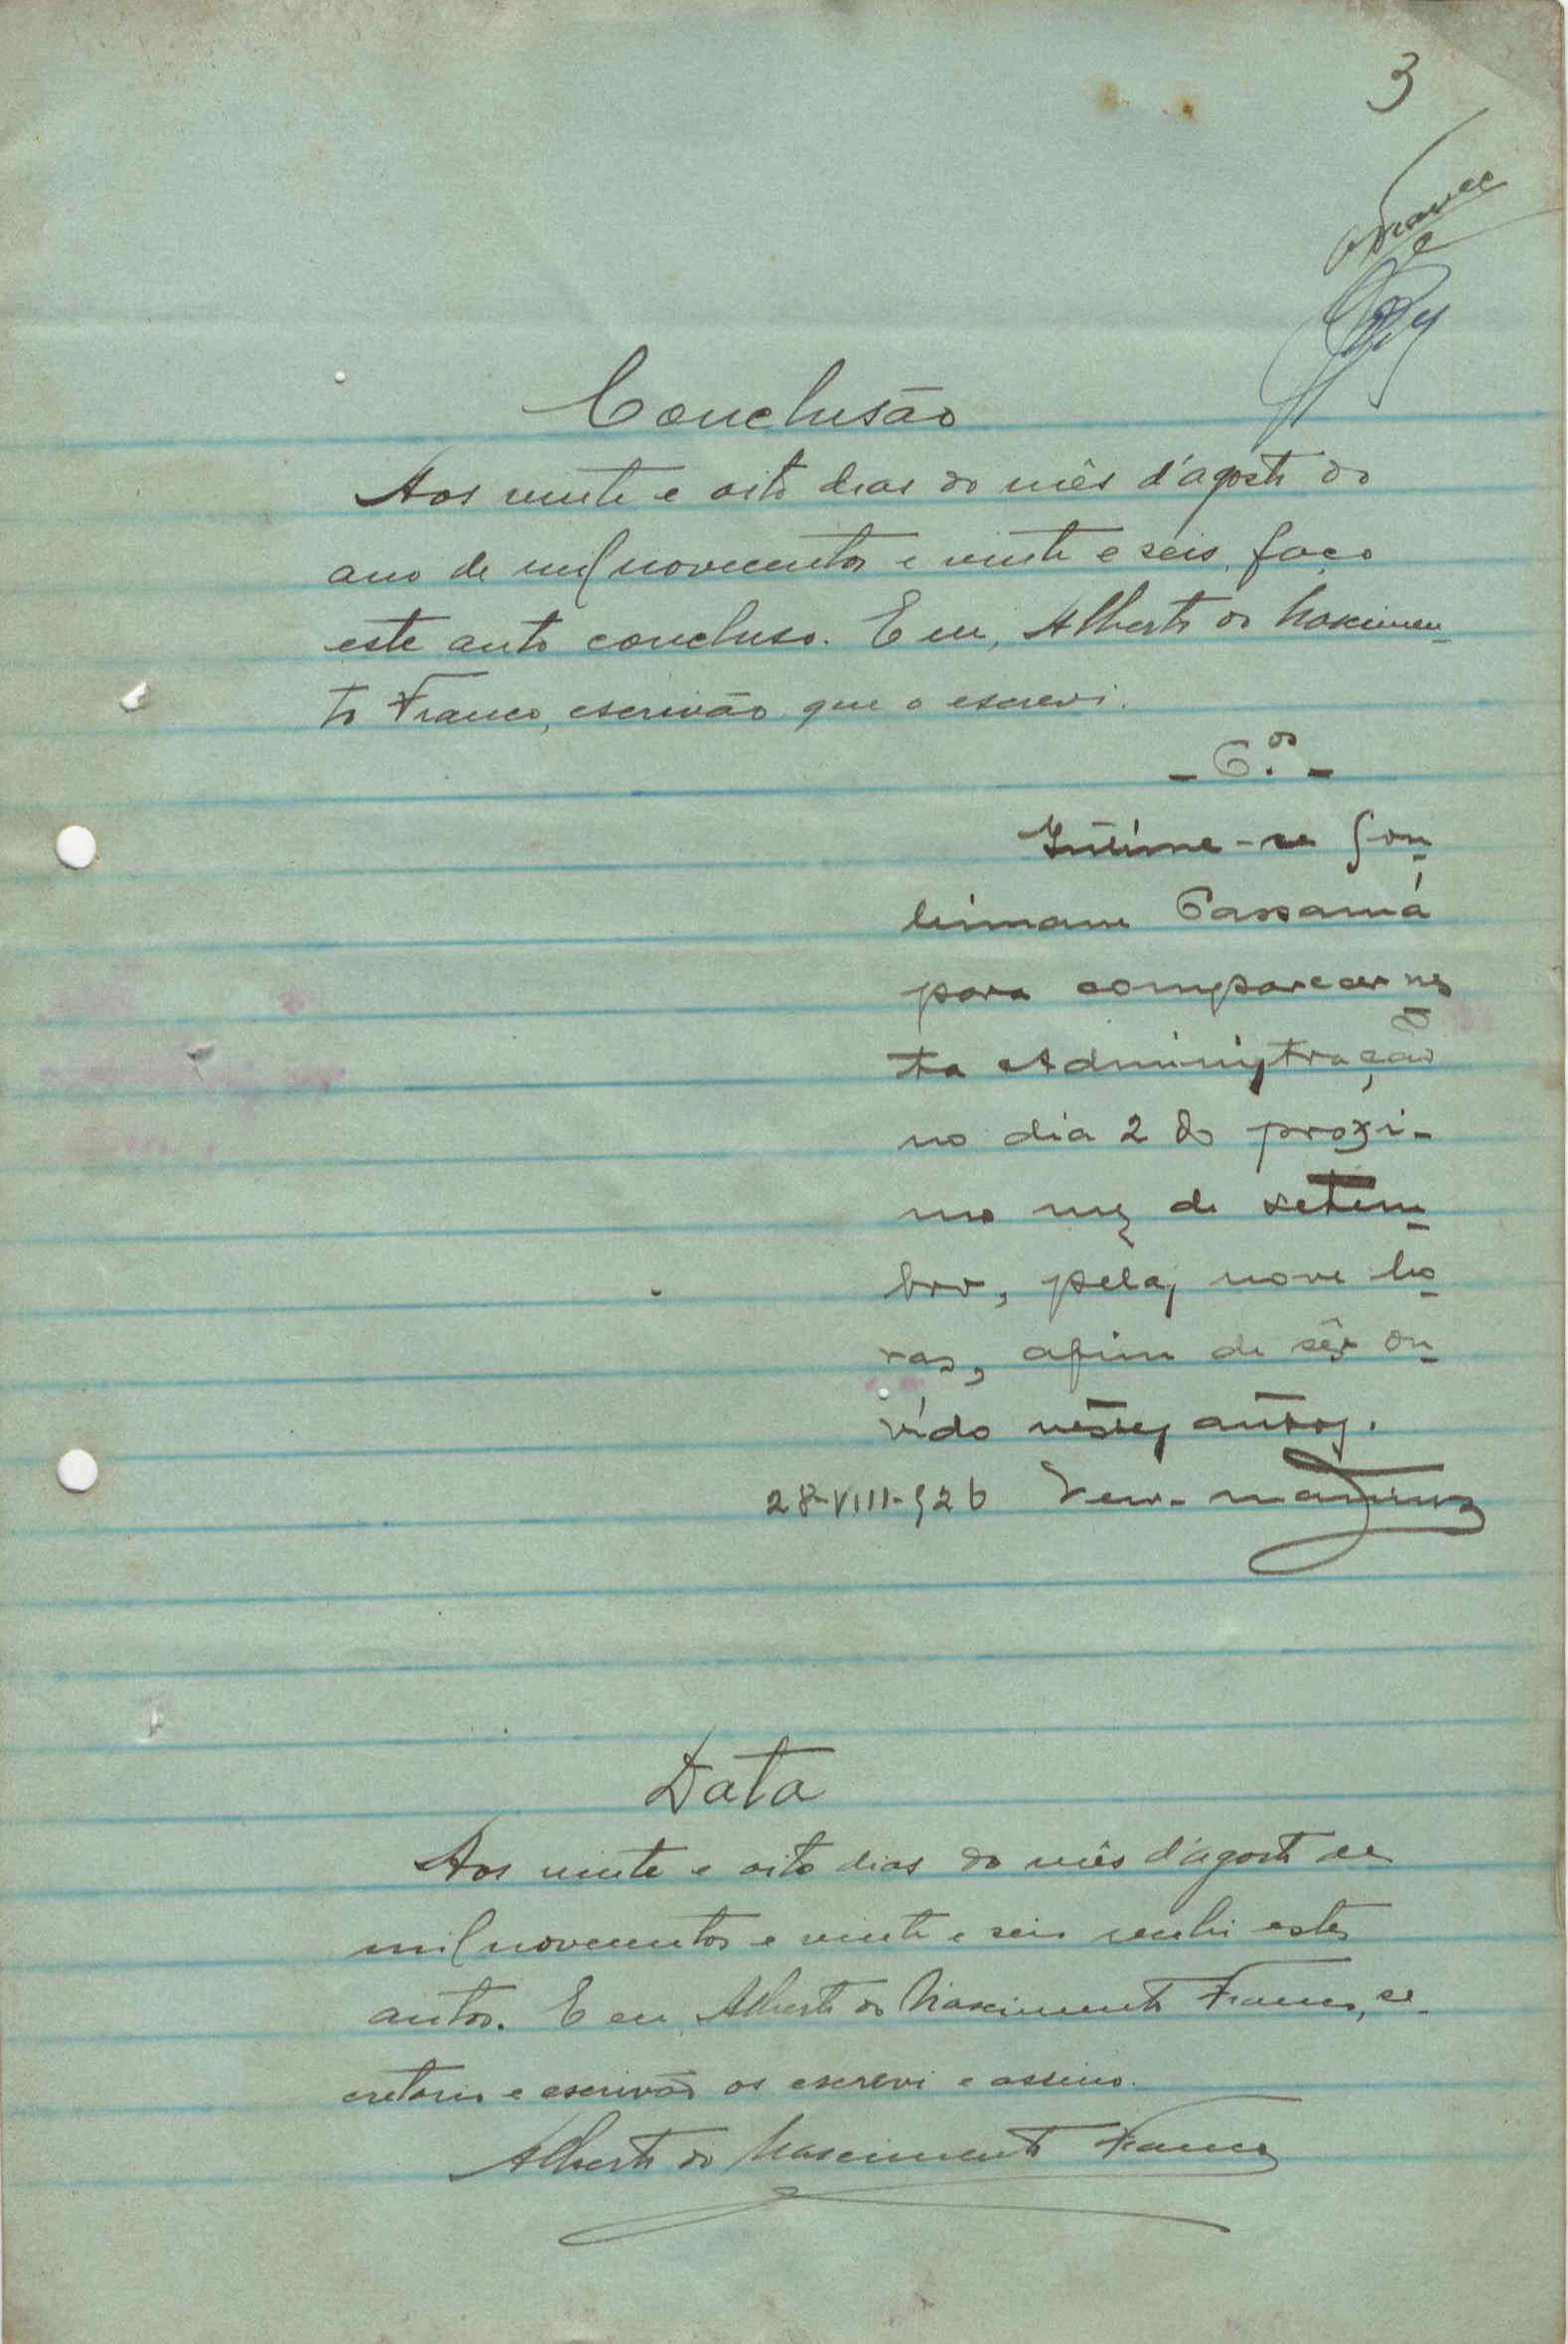 3
Franco
Conclusão
Aos vinte e oito dias do mês d'agosto do
ano de mil novecentos e vinte e seis, faço
este auto concluso. E eu, Alberto do Nascimen-
to Franco, escrivão que o escrevi.
- C.os -
Intime-se Sou-
leimane Cassamá
para comparecer nes-
ta Administração
no dia 2 do proxi-
mo mez de setem-
bro, pelas nove ho-
ras, afim de sêr ou-
vido nestes autos.
28-VIII-926
Data
Aos vinte e oito dias do mês d'agosto de
mil novecentos e vinte e seis recebi estes
autos. E eu, Alberto do Nascimento Franco, se-
cretario e escrivão os escrevi e assino.
Alberto do Nascimento Franco